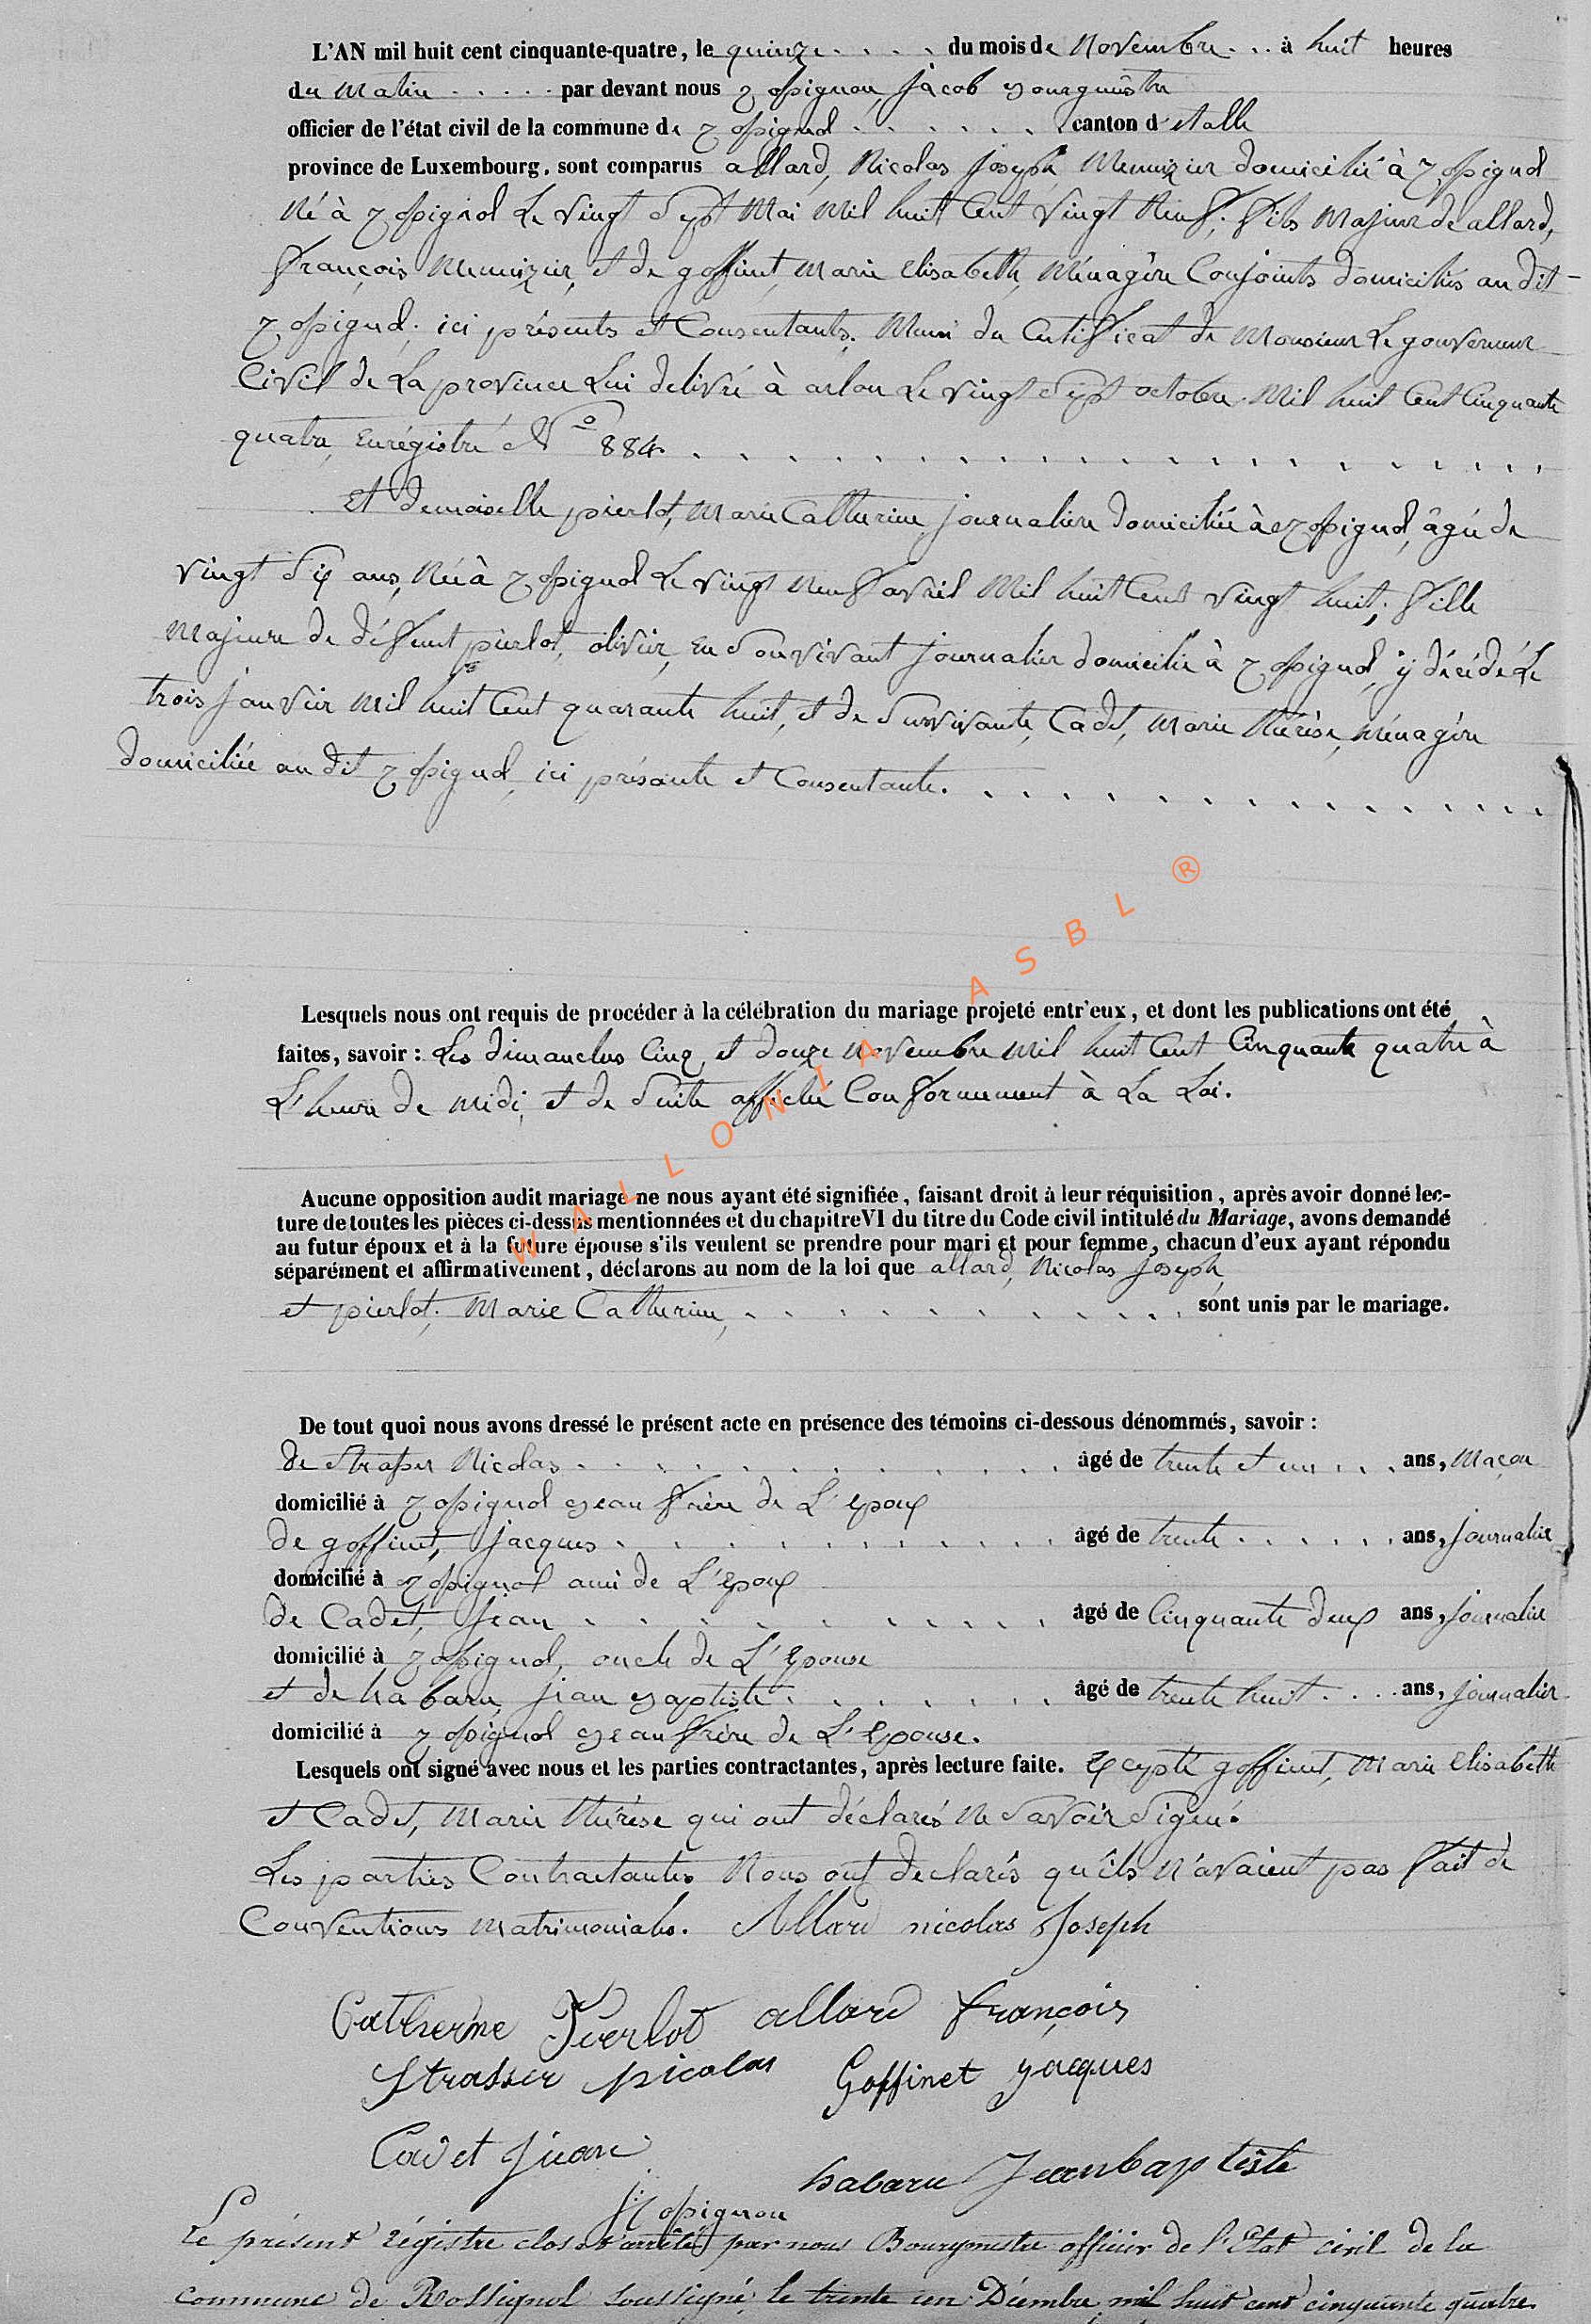 L'AN mil huit cent cinquante-quatre, le quinze du mois de Novembre à huit heures
du Matin par devant nous Rossignon, Jacob Bourgmestre
officier de l'état civil de la commune de Rossignol canton d'Etalle
province de Luxembourg, sont comparus allard, Nicolas Joseph, Menuizier domicilié à Rossignol
Né à Rossignol Le vingt Sept Mai Mil huit Cent vingt Neuf; fils Majeur de allard,
François Menuizier, et de goffinet, Marie Elisabeth, Ménagère Conjoints domiciliés au dit
Rossignol; ici présents et Consentants. Muni du Certificat de Monsieur Le gouverneur
Civil de La province Lui delivré à arlon Le vingt Sept octobre Mil huit Cent Cinquante
quatre, Enrégistré No 884.
Et demoiselle pierlot, Marie Catherine, journalière domiciliée à Rossignol, âgée de
vingt Six ans, Née à Rossignol Le vingt Neuf avril Mil huit Cent vingt huit; fille
Majeure de défunt pierlot, olivier, En Son vivant journalier domicilié à Rossignol, y décédé Le
trois janvier Mil huit Cent quarante huit, et de Survivante, Cadet, Marie Thérèse, Ménagère
domiciliée au dit Rossignol, ici présente et Consentante.
Lesquels nous ont requis de procéder à la célébration du mariage projeté entr'eux, et dont les publications ont été
faites, savoir : Les dimanches Cinq et douze Novembre Mil huit Cent Cinquante quatre à
L'heure de Midi, et de Suite affiché Conformement à La Loi.
Aucune opposition audit mariage ne nous ayant été signifiée, faisant droit à leur réquisition, après avoir donné lec-
ture de toutes les pièces ci-dessus mentionnées et du chapitre VI du titre du Code civil intitulé du Mariage, avons demandé
au futur époux et à la future épouse s'ils veulent se prendre pour mari et pour femme, chacun d'eux ayant répondu
séparément et affirmativement, déclarons au nom de la loi que allard, Nicolas Joseph,
et pierlot, Marie Catherine, sont unis par le mariage.
De tout quoi nous avons dressé le présent acte en présence des témoins ci-dessous dénommés, savoir :
de Strasser Nicolas âgé de trente et un ans, Maçon
domicilié à Rossignol Beau frère de L'Epoux
de goffinet, Jacques âgé de trente ans, journalier
domicilié à Rossignol ami de L'Epoux
de Cadet, Jean âgé de Cinquante deux ans, journalier
domicilié à Rossignol, oncle de L'Epouse
et de habaru, Jean Baptiste âgé de trente huit ans, journalier
domicilié à Rossignol Beau frère de L'Epouse.
Lesquels ont signé avec nous et les parties contractantes, après lecture faite. Excepté goffinet, Marie Elisabeth
et Cadet, Marie Thérèse qui ont déclarés Ne Savoir Signé.
Les parties Contractantes Nous ont declarés qu'ils N'avaient pas fait de
Conventions Matrimoniales. Allard nicolas Joseph
Catherine Pierlot allard François
Strasser Nicolas Goffinet Jacques
Cadet Jean
habaru Jean baptiste
Rossignon
Le présent régistre clos et arrêté par nous Bourgmestre officier de l'Etat civil de la
commune de Rossignol soussigné, le trente un Décembre mil huit cent cinquante quatre.
WALLONIA ASBL ®